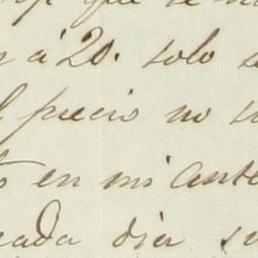 que se
á 20. solo
precio no
en mi ante
cada dia su